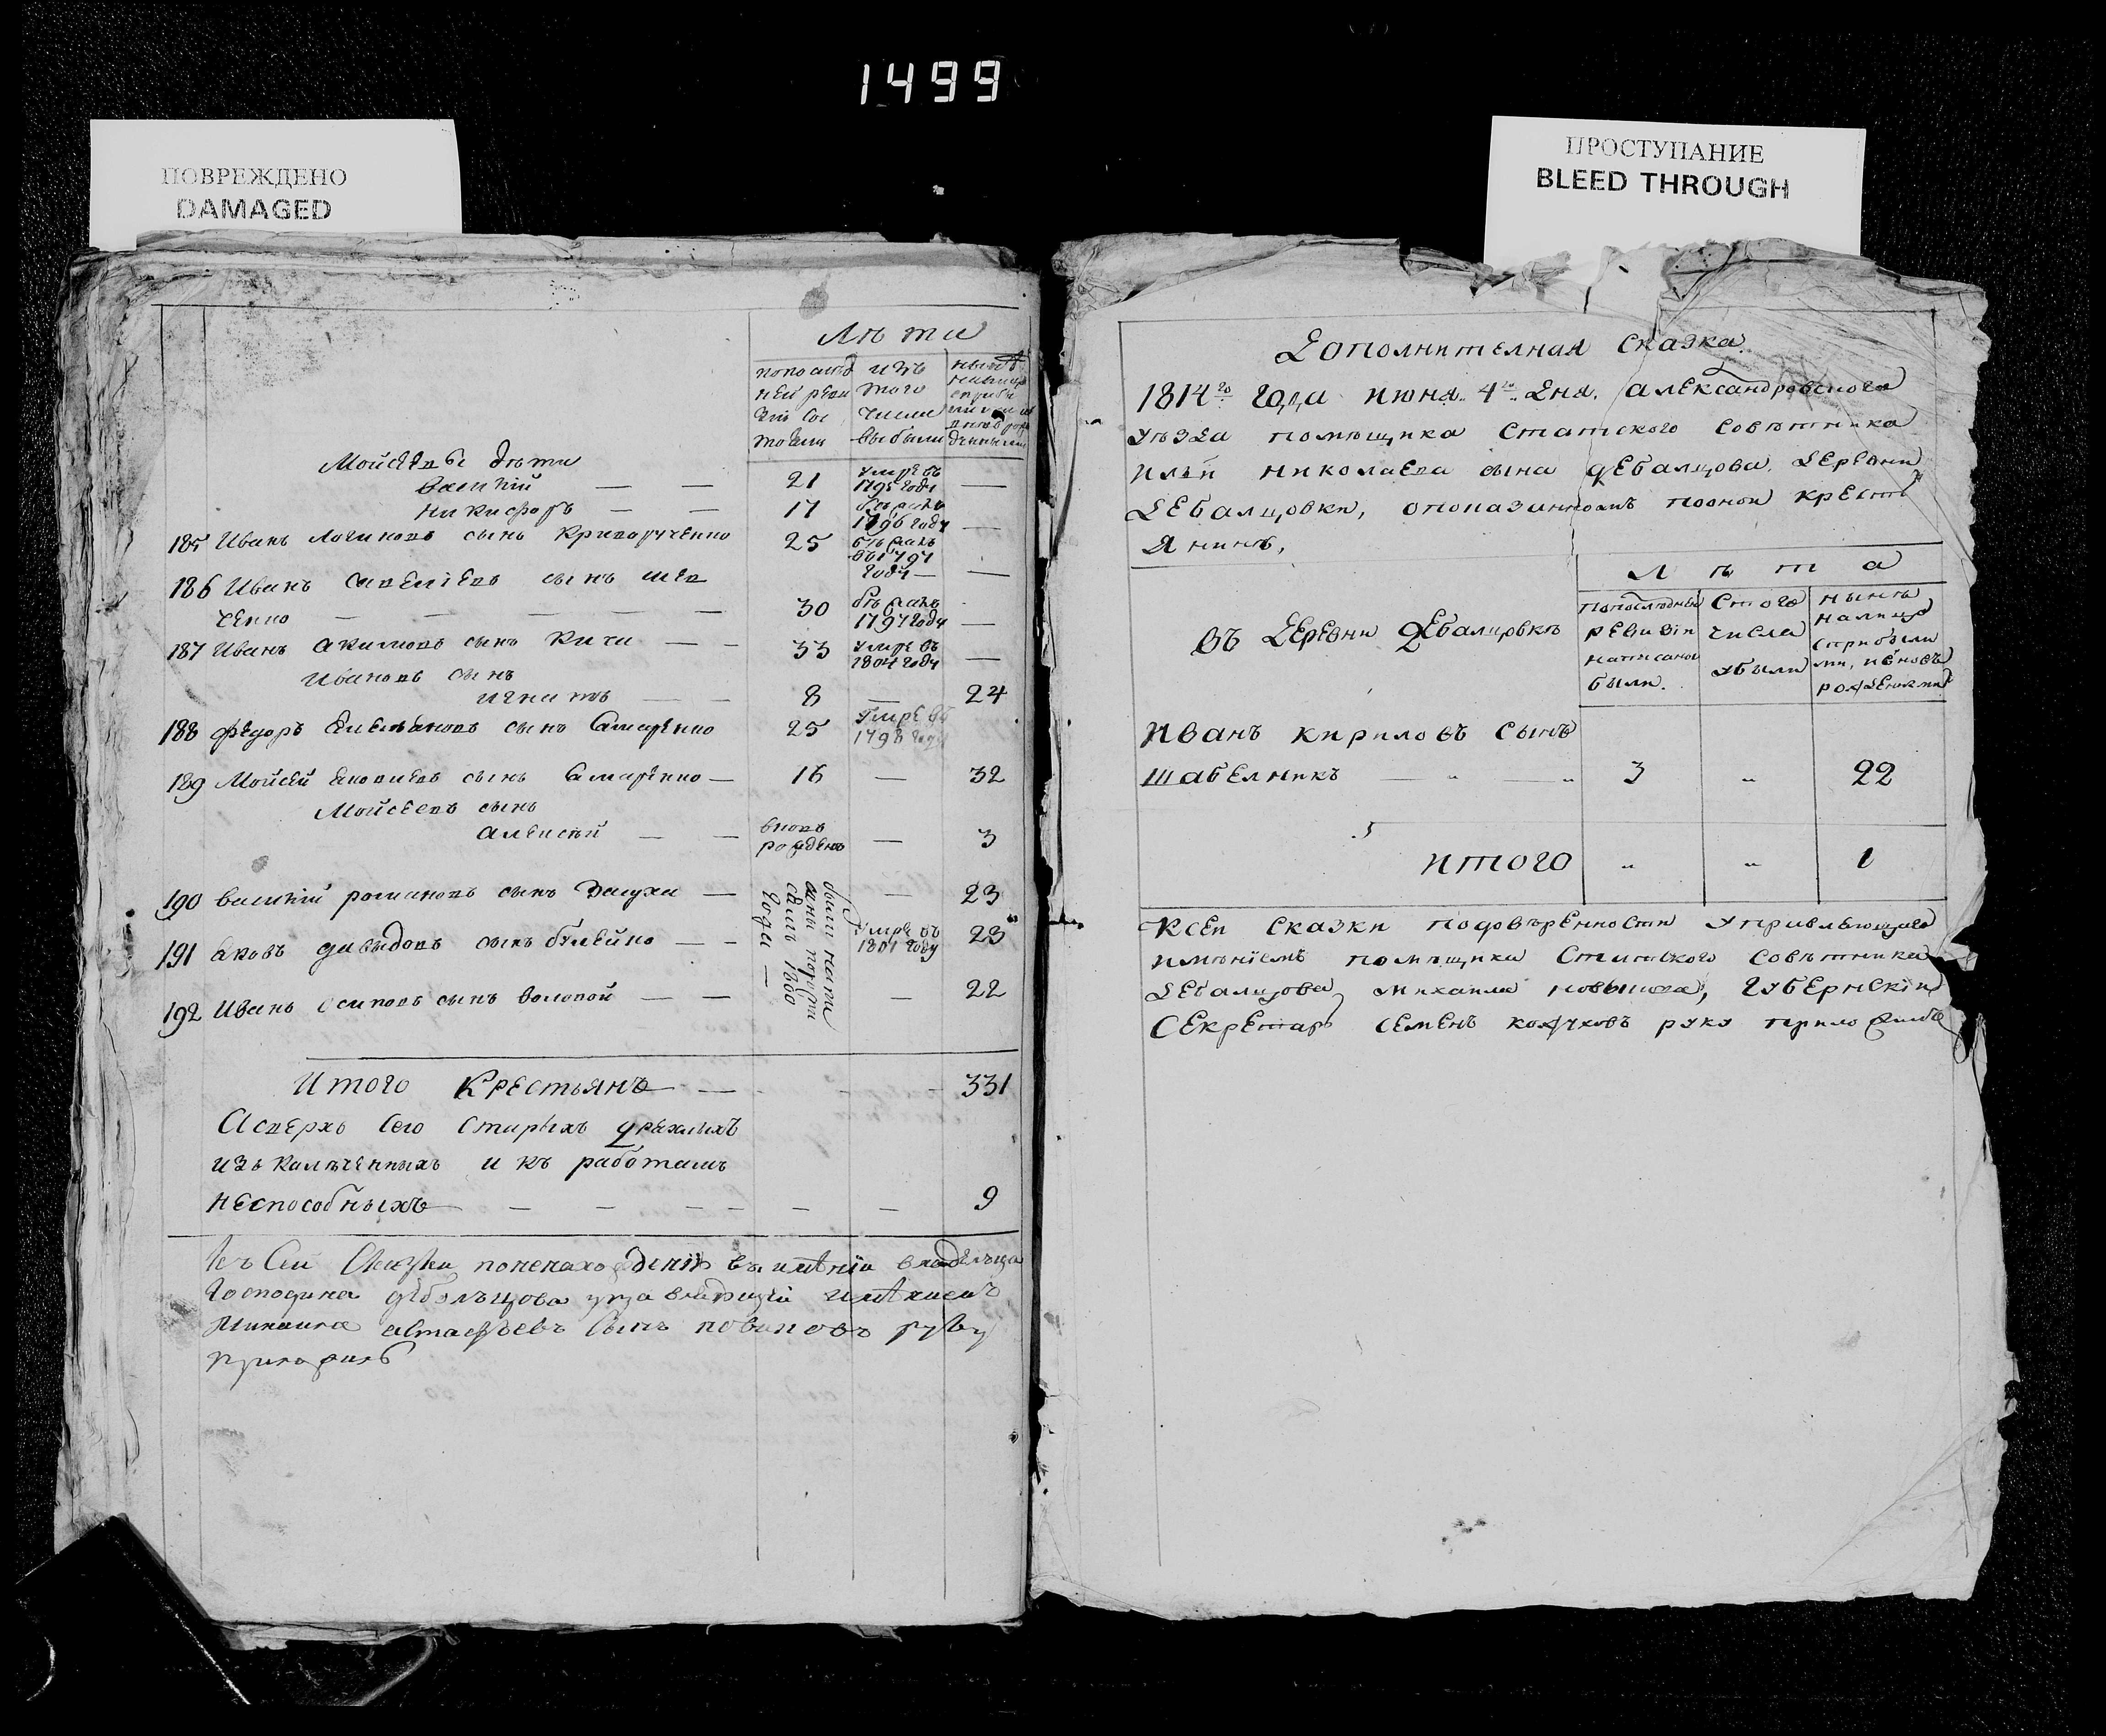 1499
ПОВРЕЖДЕНО
DAMAGED
ПРОСТУПАНИЕ
BLEED THROUGH
Лѣта
изъ
ней
того
числа
тояли
выбыли
Мойсѣевы дѣти
Василій — — 21 умре въ 1795 году —
Никифоръ — — 17 бѣжалъ 1796 году —
185 Иванъ Логиновъ сынъ Криворученко 25 бѣжалъ въ 1797 году —
186 Иванъ Савеліевъ сынъ Шев
ченко — — — — — 30 бѣжалъ 1797 году —
187 Иванъ Акимовъ сынъ Кичи — 33 умре въ 1804 году —
Ивановъ сынъ
Игнатъ — — 8 — 24
188 Федоръ Емельяновъ сынъ Самаренко 25 умре въ 1798 году
189 Мойсей Яковлевъ сынъ Самаренко — 16 — 32
Мойсеевъ сынъ
Алексѣй — — вновь рожденъ — 3
190 Василій Романовъ сынъ — — 23
191 Яковъ Давыдовъ сынъ — — умре въ 1801 году 23
192 Иванъ Осиповъ сынъ Воловой — — — 22
Итого Крестьянъ — — 331
А сверхъ сего старыхъ дряхлыхъ
изъ калѣченныхъ и къ работамъ
неспособныхъ — — — — — — — 9
Къ сей сказки по ненахождению въ имѣніи владельца
господина Дебальцова управляющій имѣниемъ
Михаила Астафьевъ сынъ Новиковъ руку
приложилъ
Дополнителная Сказка.
1814го года июня 4го дня. Александровского
уѣзда помѣщика Статского Советника
Ильи Николаева сына Дебалцова. Деревни
Дебалцовки, о показанномъ новой крестъ
янинѣ,
Лѣта
Въ Деревни Дебалцовкѣ
По последней
ревизіи
написаны
были.
С того
числа
убыли
нынѣ
налицо
с прибылы
ми, и вновь
рожденными
Иванъ Кириловъ сынъ
Шабелникъ — " — " 3 " 22
Итого " " 1
К сей сказки по доверенности управляющего
имѣніемъ помѣщика Статского Советника
Дебалцова Михаила Новикова, Губернскій
Секретарь Семенъ Кожуховъ руку приложилъ